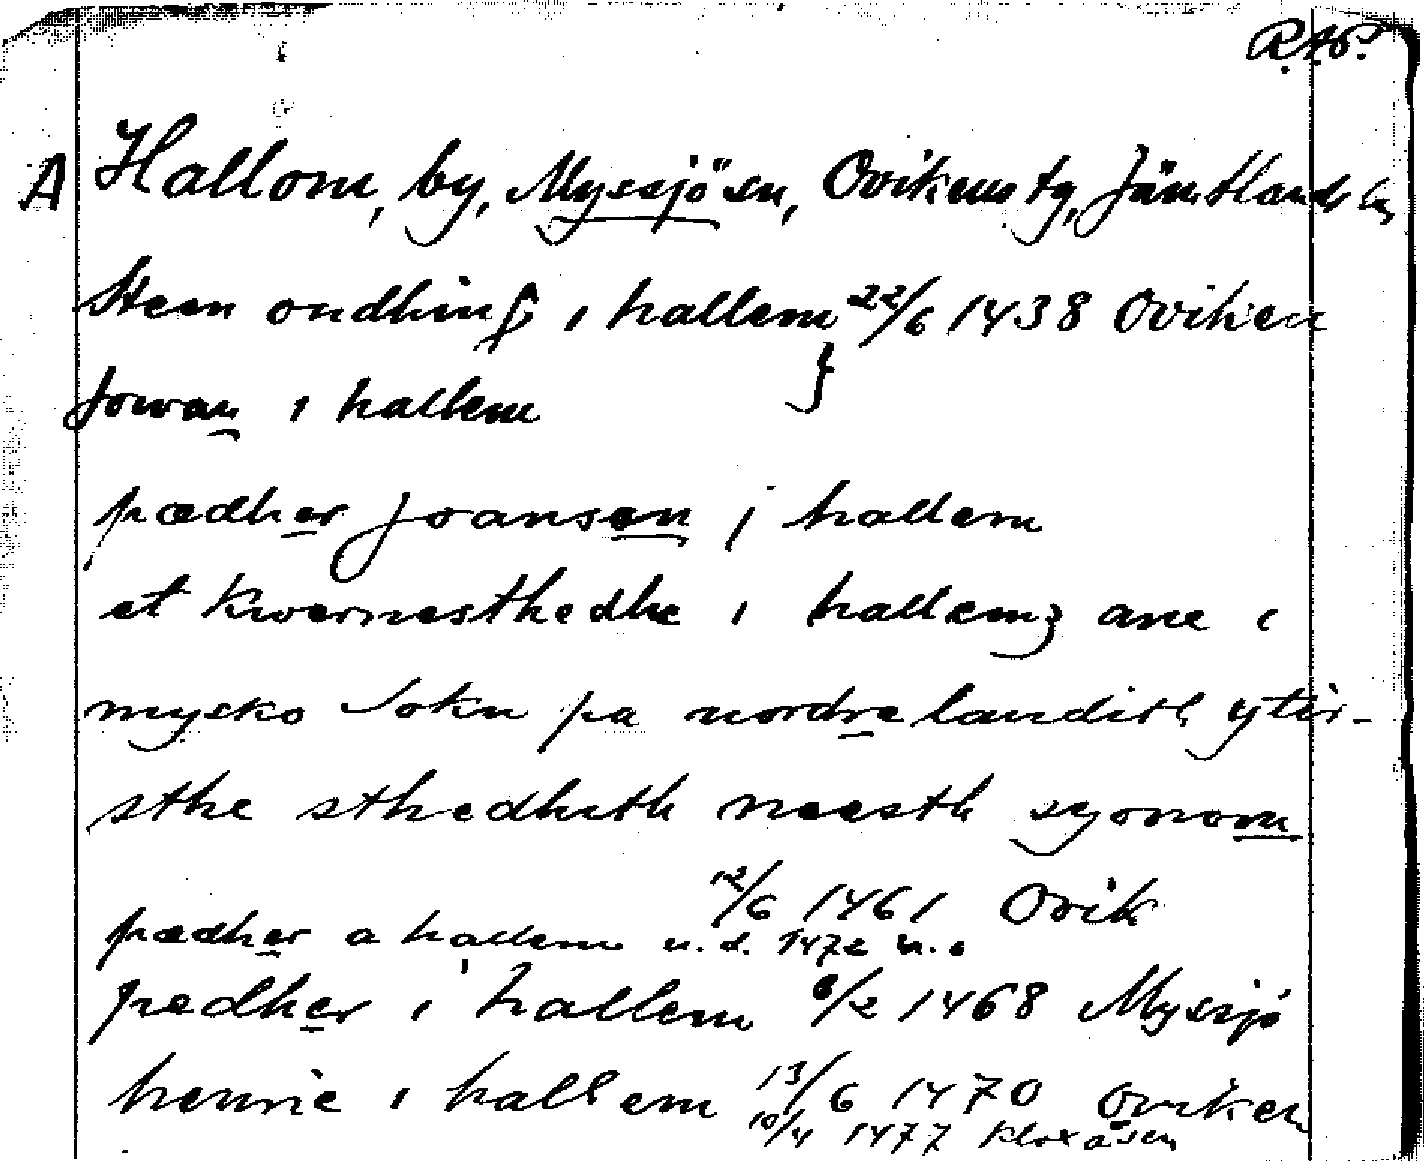 R.Ap.
A Hallom, by, Myssjö sn, Ovikens tg, Jämtlands l.
Steen ondhins i hallem 22/6 1438 Oviken
Jowan i hallem }
pædher Joansen j hallem
et kwernesthedhe i hallems ane i
mysko sokn pa nordre landith ytir-
sthe sthedhith neesth syonom
12/6 1461 Ovik
pædher a hallem u.d. 1472 u.o
pædher i hallem 6/2 1468 Myssjö
henric i hallem 13/6 1470 Oviken
10/4 1477 Kloxåsen